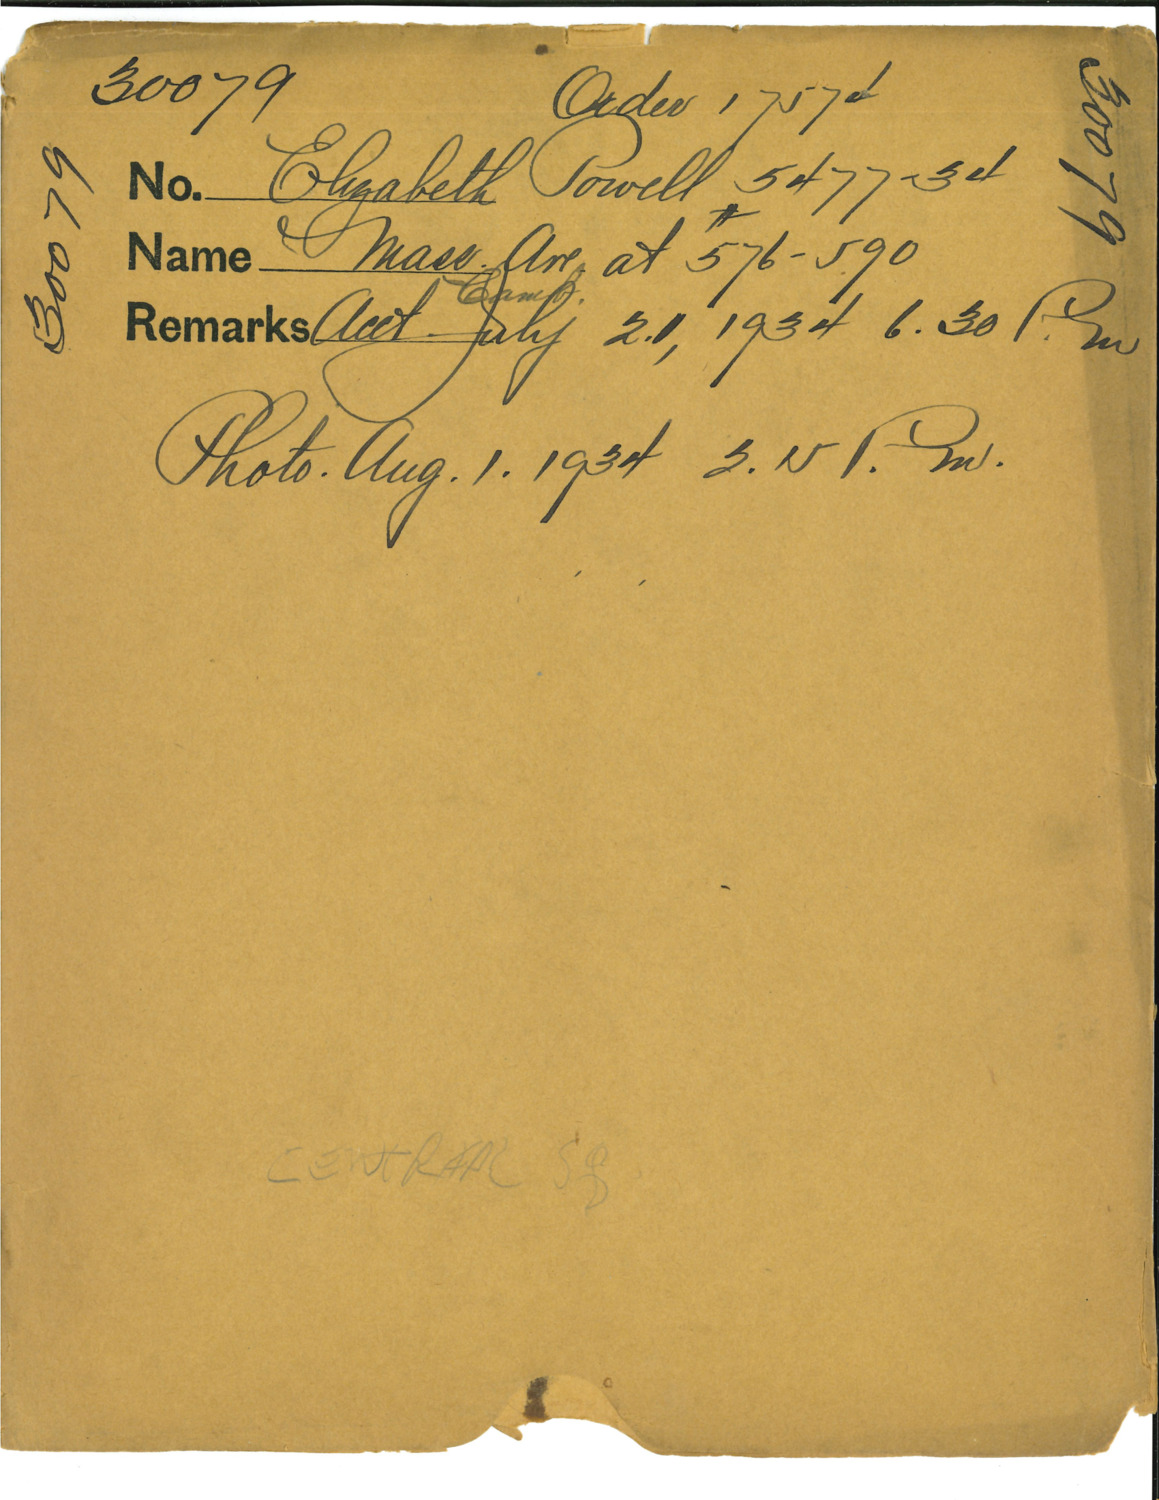 30079 Order 17574
30079
30079
No. Elizabeth Powell 5477-34
Name Mass. Ave. at #576-590
Camb.
Remarks Acct July 21, 1934 6.30 P.M
Photo. Aug. 1. 1934 3.15 P.M.
CENTRAL SQ